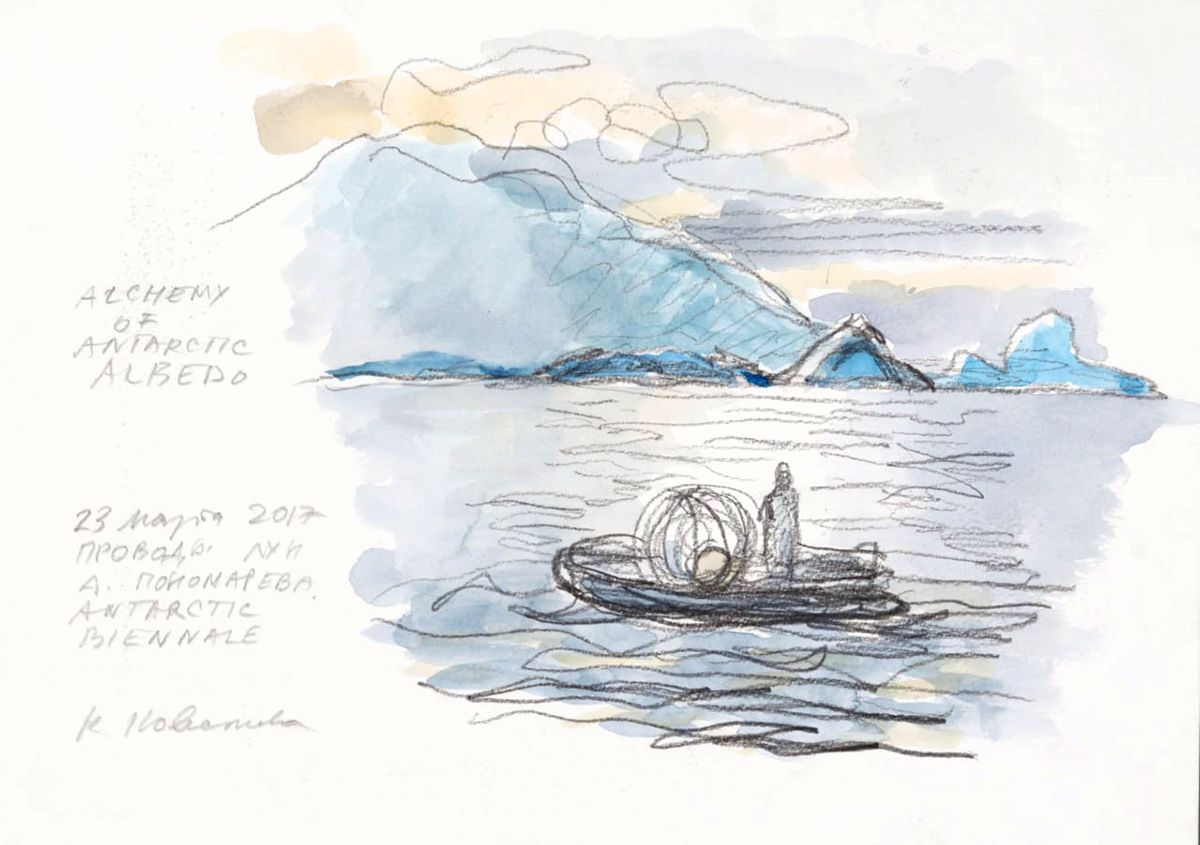 ALCHEMY
OF
ANTARCTIC
ALBEDO
23 марта 2017
ПРОВОДЫ
А. ПОНОМАРЕВА.
ANTARCTIC
BIENNALE